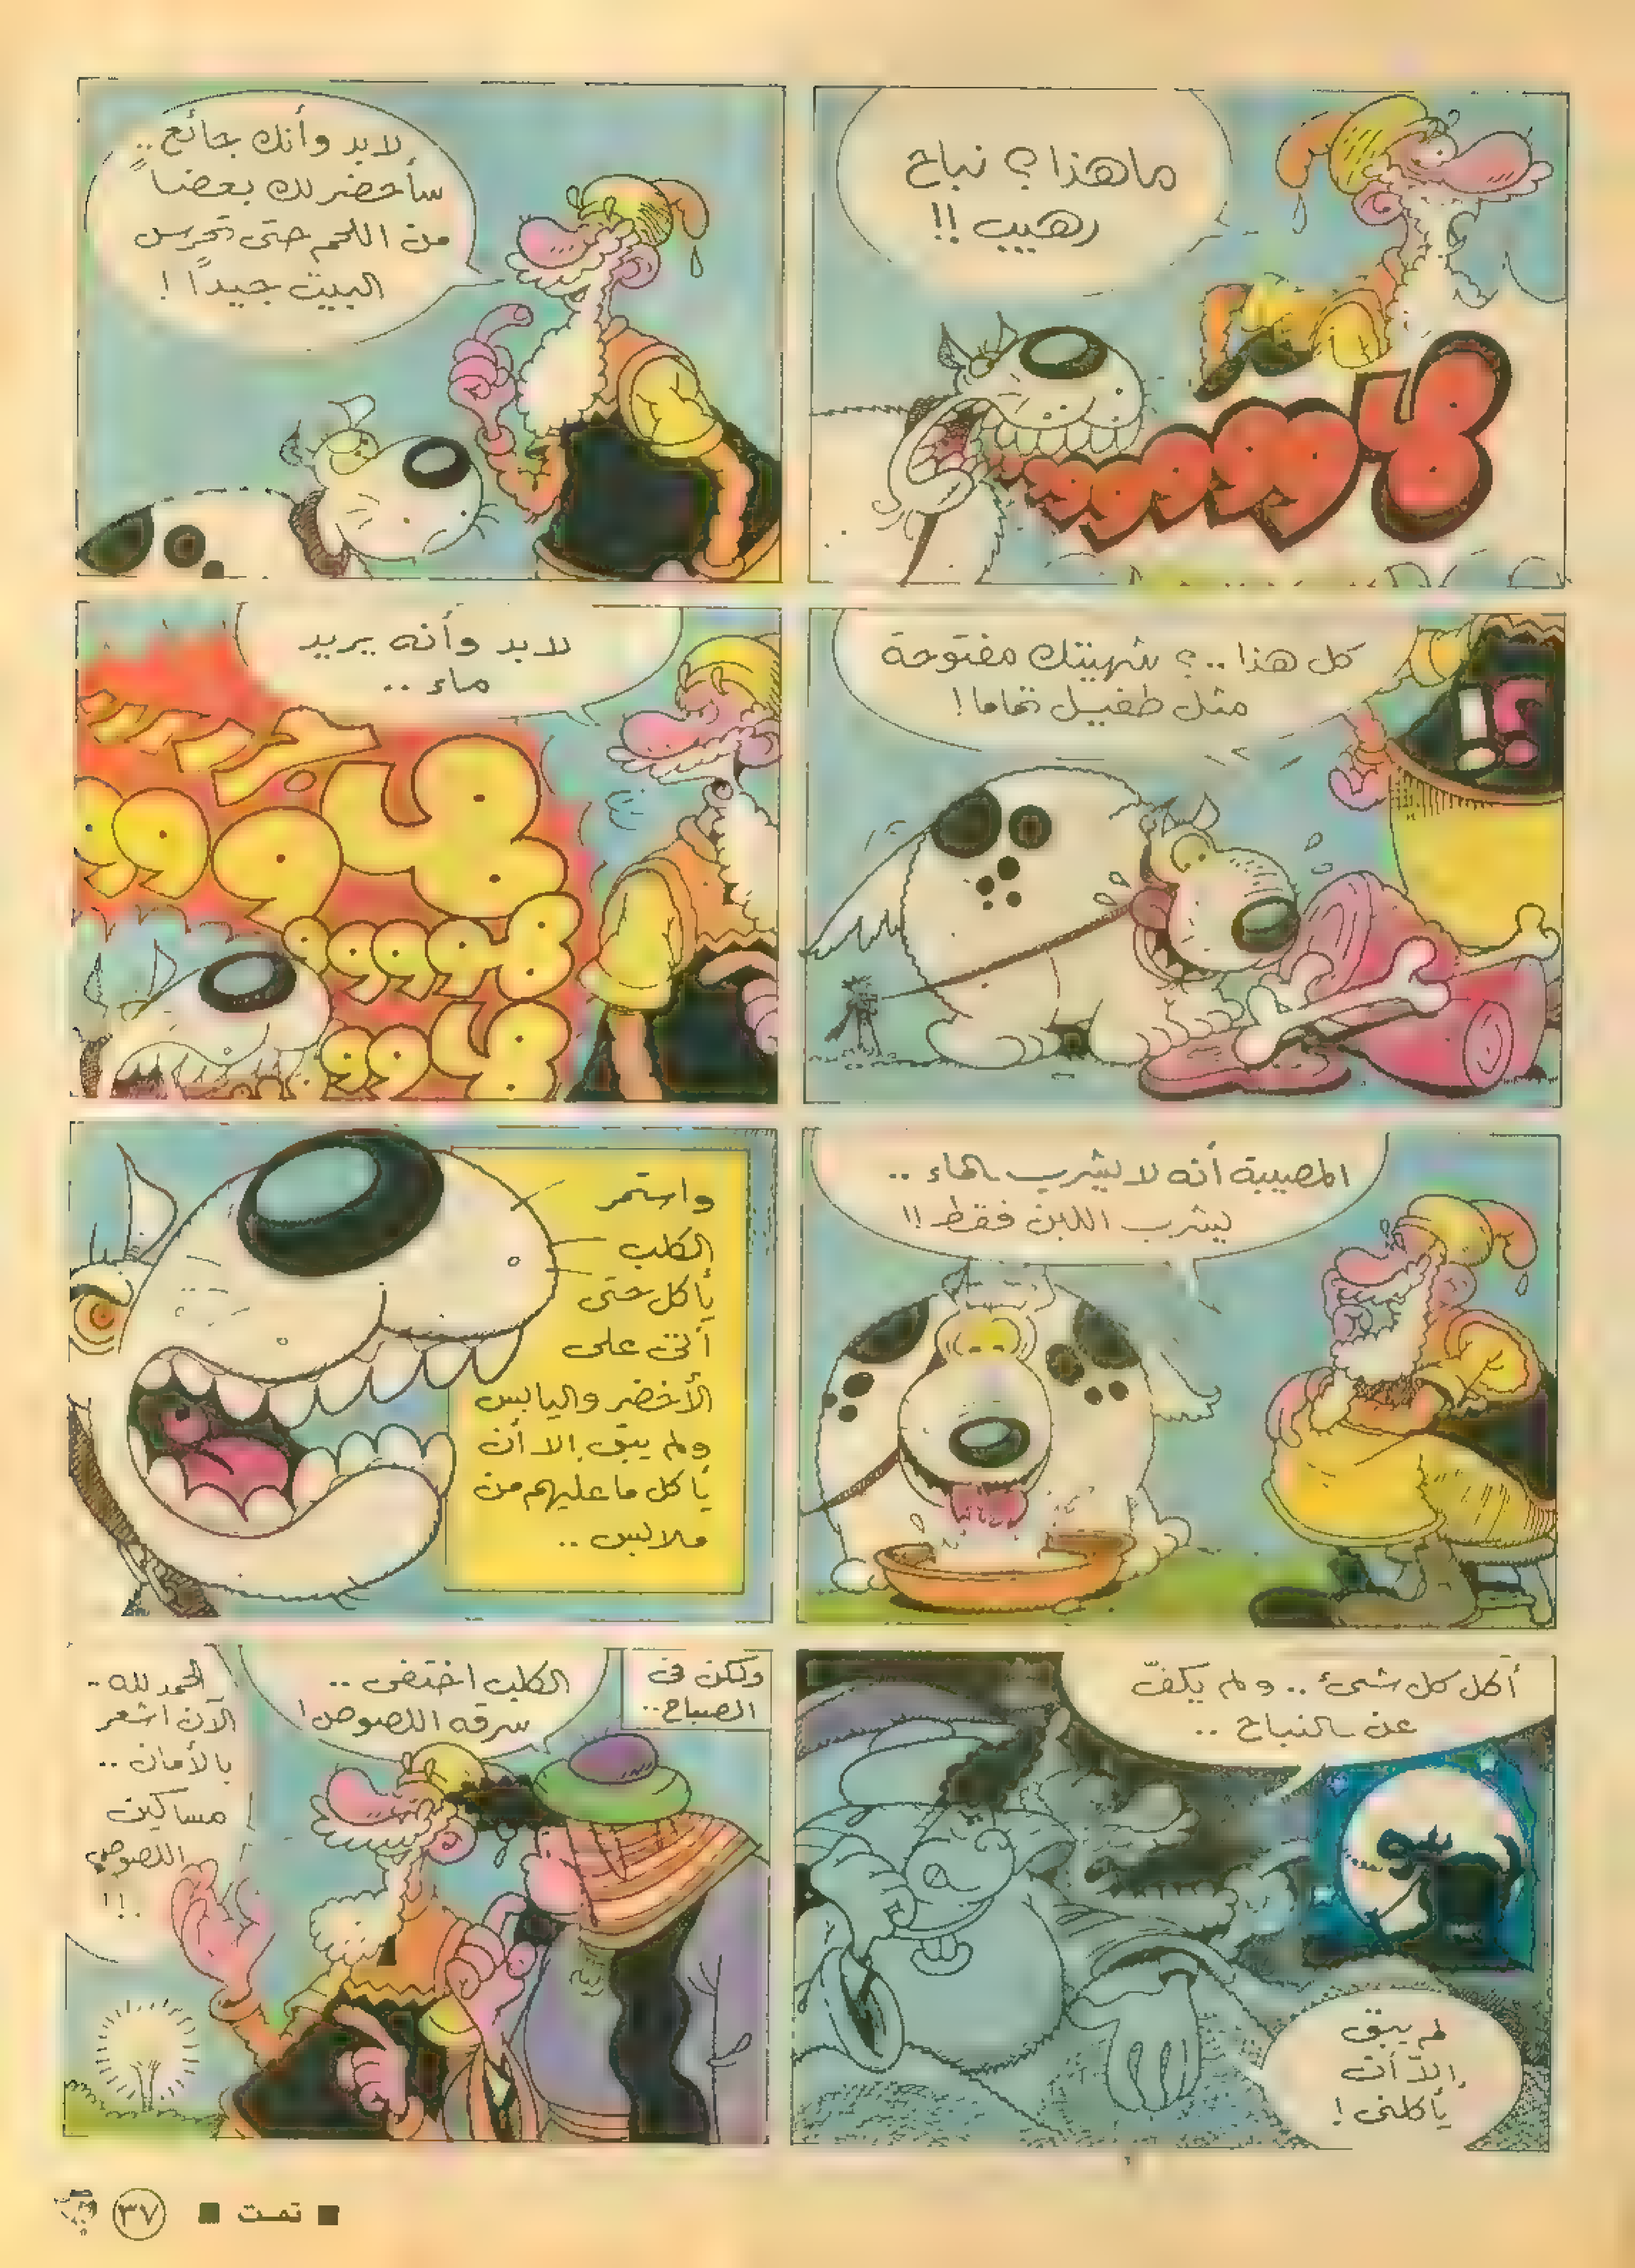 ما هذا ؟ نباح
رهييب !!
هووووو
لابد وأنك جائع ..
سأحضر لك بعضاً
من اللحم حتى تحرس
البيت جيداً !
كل هذا .. ؟ شهيتك مفتوحة
مثل طفيل تماما !
؟!
لابد وأنه يريد
ماء ..
هووو
هوووو
هووو
المصيبة أنه لا يشرب الماء ..
يشرب اللبن فقط !!
واستمر
الكلب
يأكل حتى
أتى على
الأخضر واليابس
ولم يبق إلا أن
يأكل ما عليهم من
ملابس ..
أكل كل شئ .. ولم يكفّ
عن النباح ..
هو
لم يبق
إلاّ أن
يأكلنى !
ولكن فى
الصباح ..
الكلب اختفى ..
سرقه اللصوص !
الحمد لله ..
الآن اشعر
بالأمان ..
مساكين
اللصوص
!!
■ تمت ■
٣٧